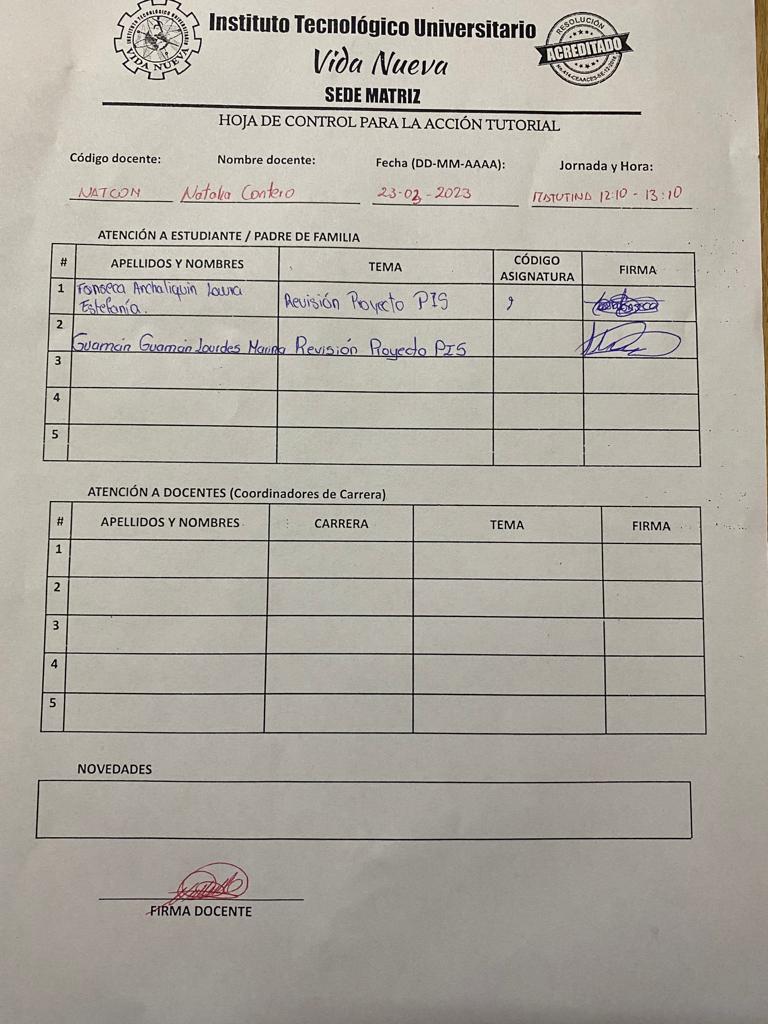 INSTITUTO TECNOLÓGICO UNIVERSITARIO
VIDA NUEVA
Instituto Tecnológico Universitario
Vida Nueva
SEDE MATRIZ
RESOLUCIÓN
ACREDITADO
HOJA DE CONTROL PARA LA ACCIÓN TUTORIAL
Código docente: Nombre docente: Fecha (DD-MM-AAAA): Jornada y Hora:
NATCON Natalia Contero 23-03-2023 MATUTINA 12:10 - 13:10
ATENCIÓN A ESTUDIANTE / PADRE DE FAMILIA
# APELLIDOS Y NOMBRES TEMA CÓDIGO ASIGNATURA FIRMA
1 Fonseca Anchaliquin Laura
Estefanía. Revisión Proyecto PIS
2
Guamán Guamán Lourdes Marina Revisión Proyecto PIS
3
4
5
ATENCIÓN A DOCENTES (Coordinadores de Carrera)
# APELLIDOS Y NOMBRES CARRERA TEMA FIRMA
1
2
3
4
5
NOVEDADES
FIRMA DOCENTE